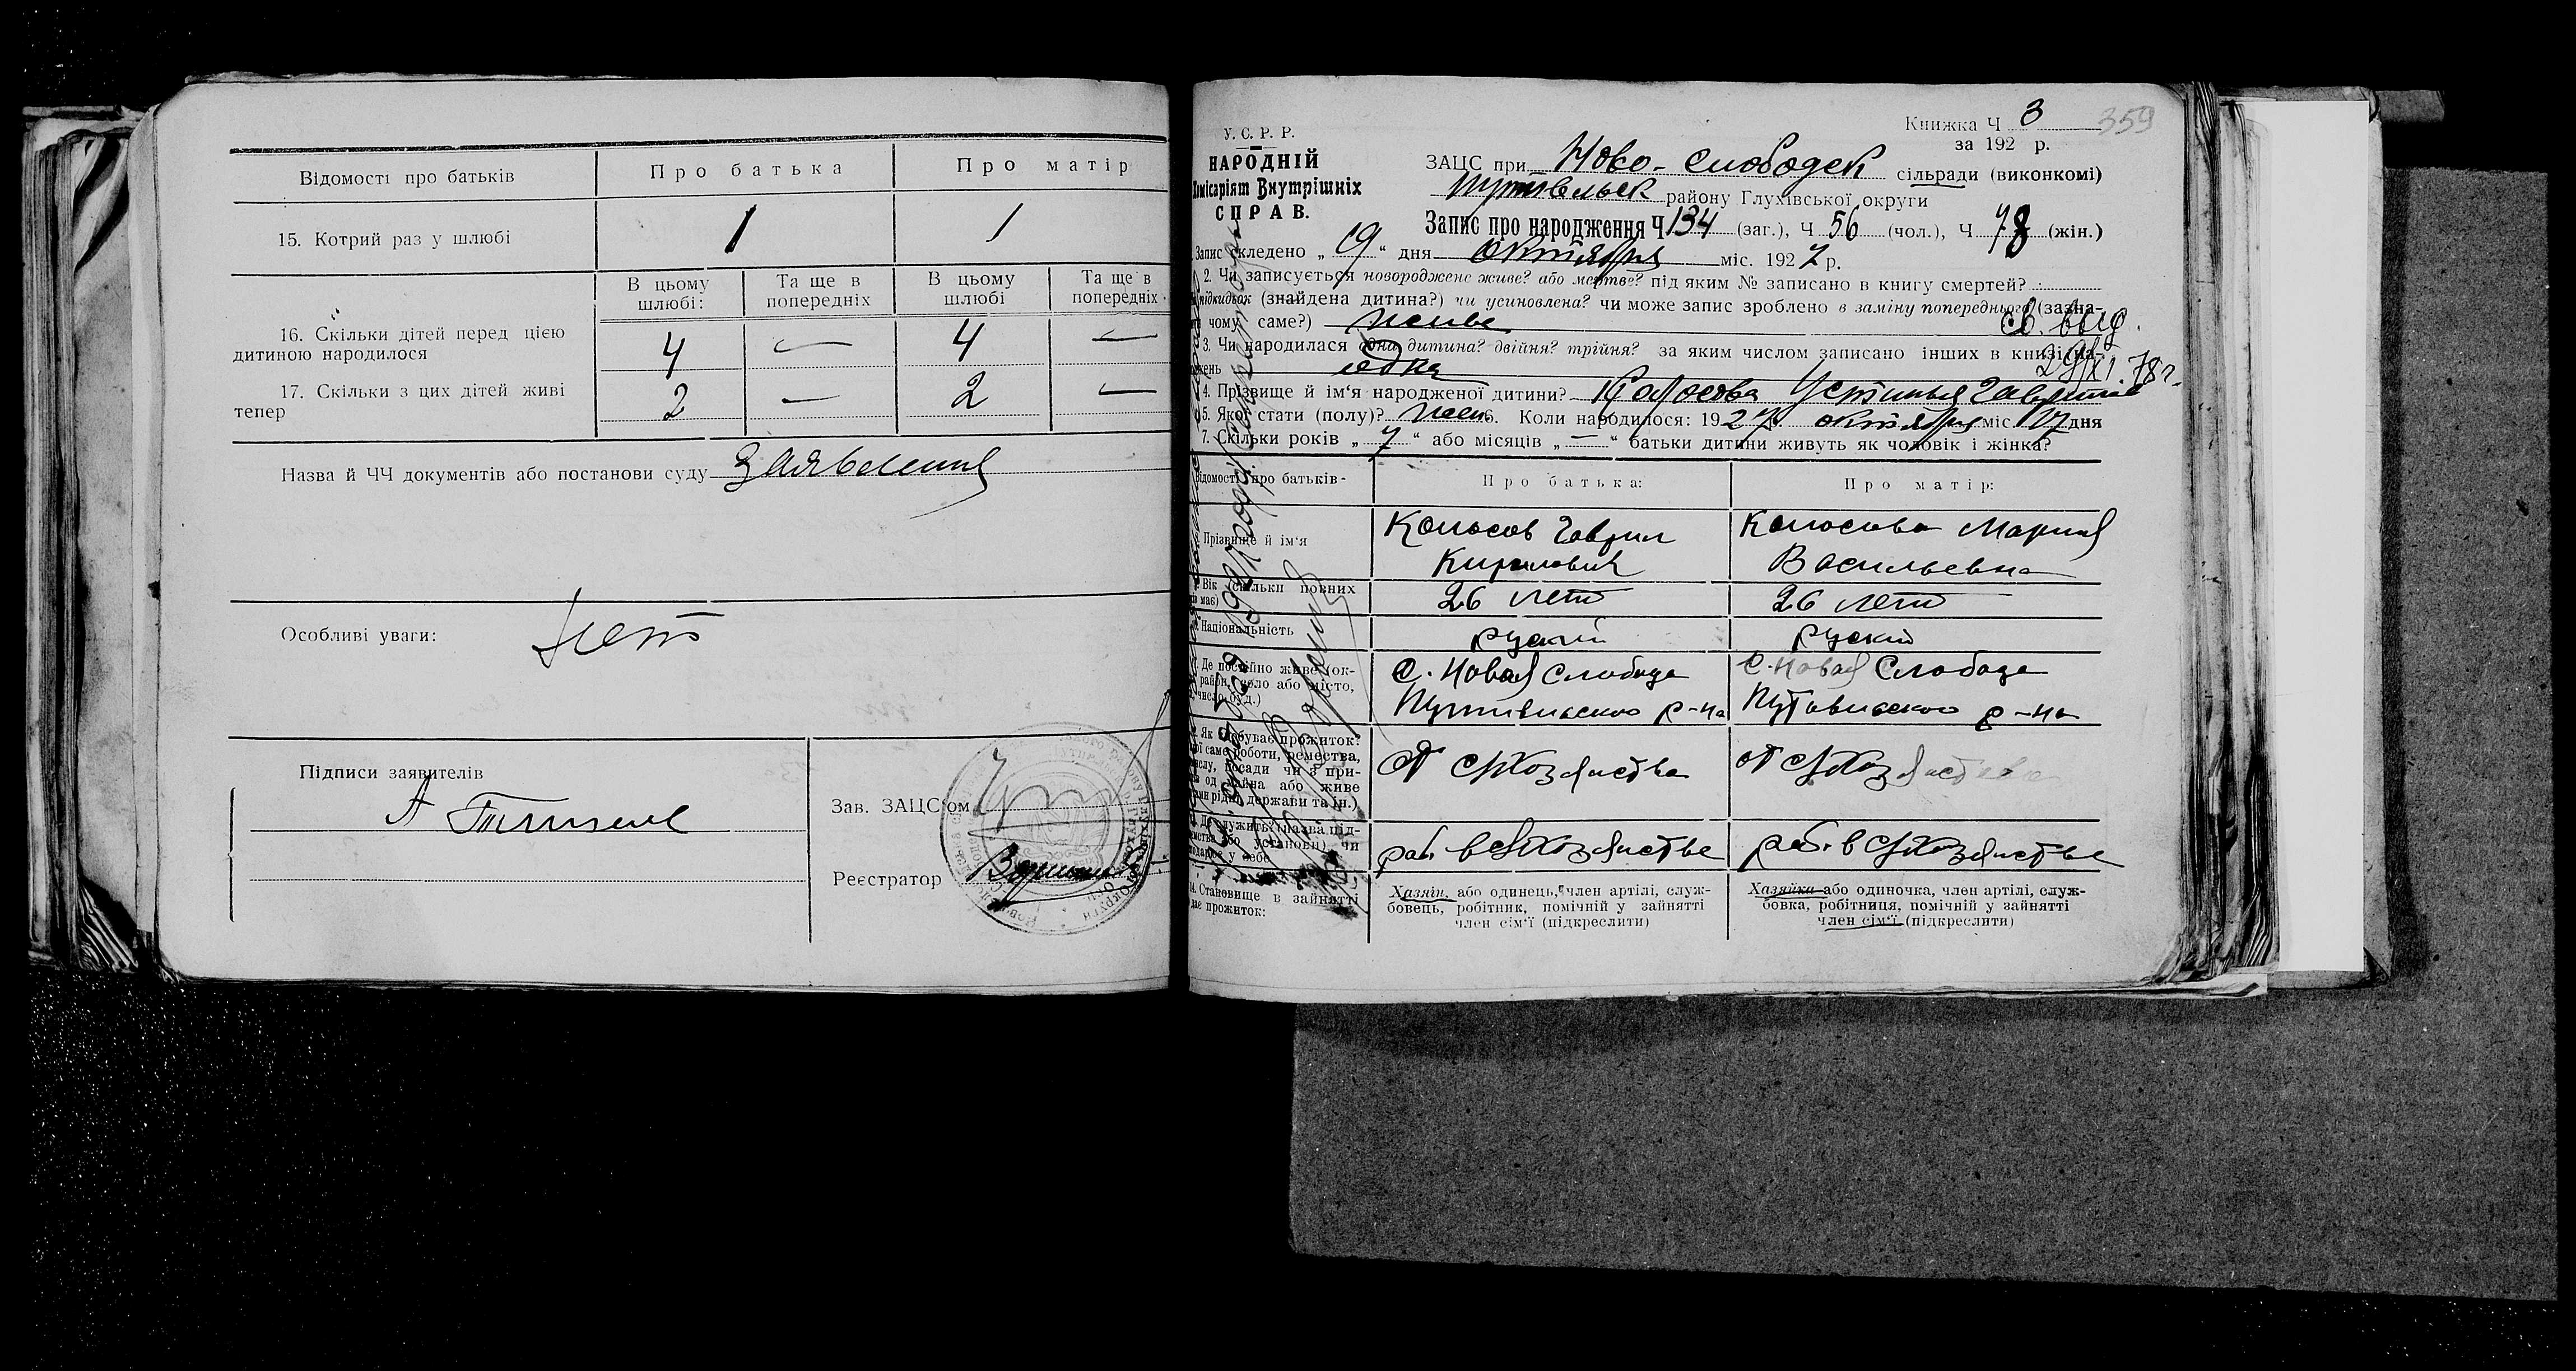 Відомості про батьків
Про батька
Про матір
15. Котрий раз у шлюбі
1
1
В цьому шлюбі:
Та ще в попередніх
В цьому шлюбі
Та ще в попередніх
16. Скільки дітей перед цією
дитиною народилося
4
—
4
—
17. Скільки з цих дітей живі
тепер
2
—
2
—
Назва й ЧЧ документів або постанови суду заявление
Особливі уваги: нет
Підписи заявителів
Зав. ЗАЦС'ом
Реєстратор
Книжка Ч 3
359
за 192 р.
У. С. Р. Р.
НАРОДНІЙ
Комісаріят Внутрішніх
СПРАВ.
ЗАЦС при Ново-Слободск сільради (виконкомі)
Путивльск району Глухівської округи
Запис про народження Ч 134 (заг.), Ч 56 (чол.), Ч 78 (жін.)
Запис складено „19“ дня октября міс. 1927 р.
2. Чи записується новороджене живе? або мертве? під яким № записано в книгу смертей?
підкидьок (знайдена дитина?) чи усиновлена? чи може запис зроблено в заміну попереднього (зазна-
чому саме?) живе
св. выд.
29/XI.78г.
3. Чи народилася одна дитина? двійня? трійня? за яким числом записано інших в книзі на-
жень одна
4. Прізвище й ім'я народженої дитини? Колосова Устинья
5. Якої стати (полу)? жен. 6. Коли народилося: 1927 октября міс. 17 дня
7. Скільки років „7“ або місяців „—“ батьки дитини живуть як чоловік і жінка?
Відомості про батьків
Про батька:
Про матір:
Прізвище й ім'я
Колосов Гаврил
Кирилович
Колосова Мария
Васильевна
Вік (скільки повних
має)
26 лет
26 лет
Національність
руский
руский
Де постійно живе (ок-
район, село або місто,
число буд.)
С. Новая Слобода
Путивльского р-на
С. Новая Слобода
Путивльского р-на
Як здобуває прожиток:
саме роботи, ремества,
посади чи з при-
майна або живе
держави та ін.)
от с/хозяйства
от с/хозяйства
Де служить (назва під-
або установи) чи
у себе
раб. в с/хозяйстве
раб. в с/хозяйстве
14. Становище в зайнятті
дає прожиток:
Хазяїн або одинець, член артілі, служ-
бовець, робітник, помічній у зайнятті
член сім'ї (підкреслити)
Хазяйка або одиночка, член артілі, служ-
бовка, робітниця, помічній у зайнятті
член сім'ї (підкреслити)